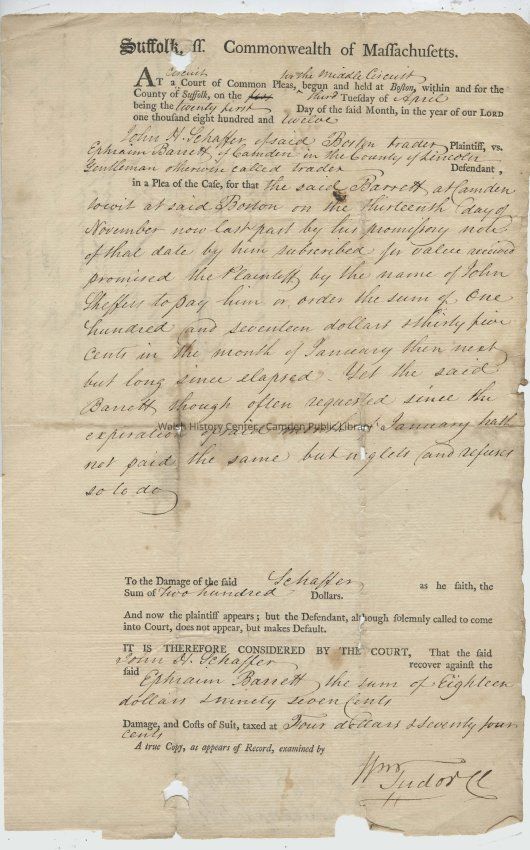 Suffolk, ss. Commonwealth of Massachusetts.
Circuit for the Middle Circuit
AT a Court of Common Pleas, begun and held at Boston, within and for the
County of Suffolk, on the third Tuesday of April
being the twenty first Day of the said Month, in the year of our LORD
one thousand eight hundred and twelve
John H. Schaffer, of said Boston trader Plaintiff, vs.
Ephraim Barrett of Camden in the County of Lincoln
Gentleman otherwise called trader Defendant,
in a Plea of the Case, for that the said Barrett at Camden
towit at said Boston on the thirteenth day of
November now last past by his promissory note
of that date by him subscribed for value received
promised the Plaintiff by the name of John
Sheffers to pay him or order the sum of One
hundred and seventeen dollars & thirty five
cents in the month of January then next
but long since elapsed. Yet the said
Barrett though often requested since the
Walsh History Center, Camden Public Library
expiration of said month of January hath
not paid the same but neglets and refuses
so to do
To the Damage of the said Schaffer as he saith, the
Sum of two hundred Dollars.
And now the plaintiff appears; but the Defendant, although solemnly called to come
into Court, does not appear, but makes Default.
IT IS THEREFORE CONSIDERED BY THE COURT, That the said
John H. Schaffer recover against the
said Ephraim Barrett the sum of Eighteen
dollars & ninety seven Cents
Damage, and Costs of Suit, taxed at Four dollars & seventy four
cents
A true Copy, as appears of Record, examined by
Wm Tudor Cl